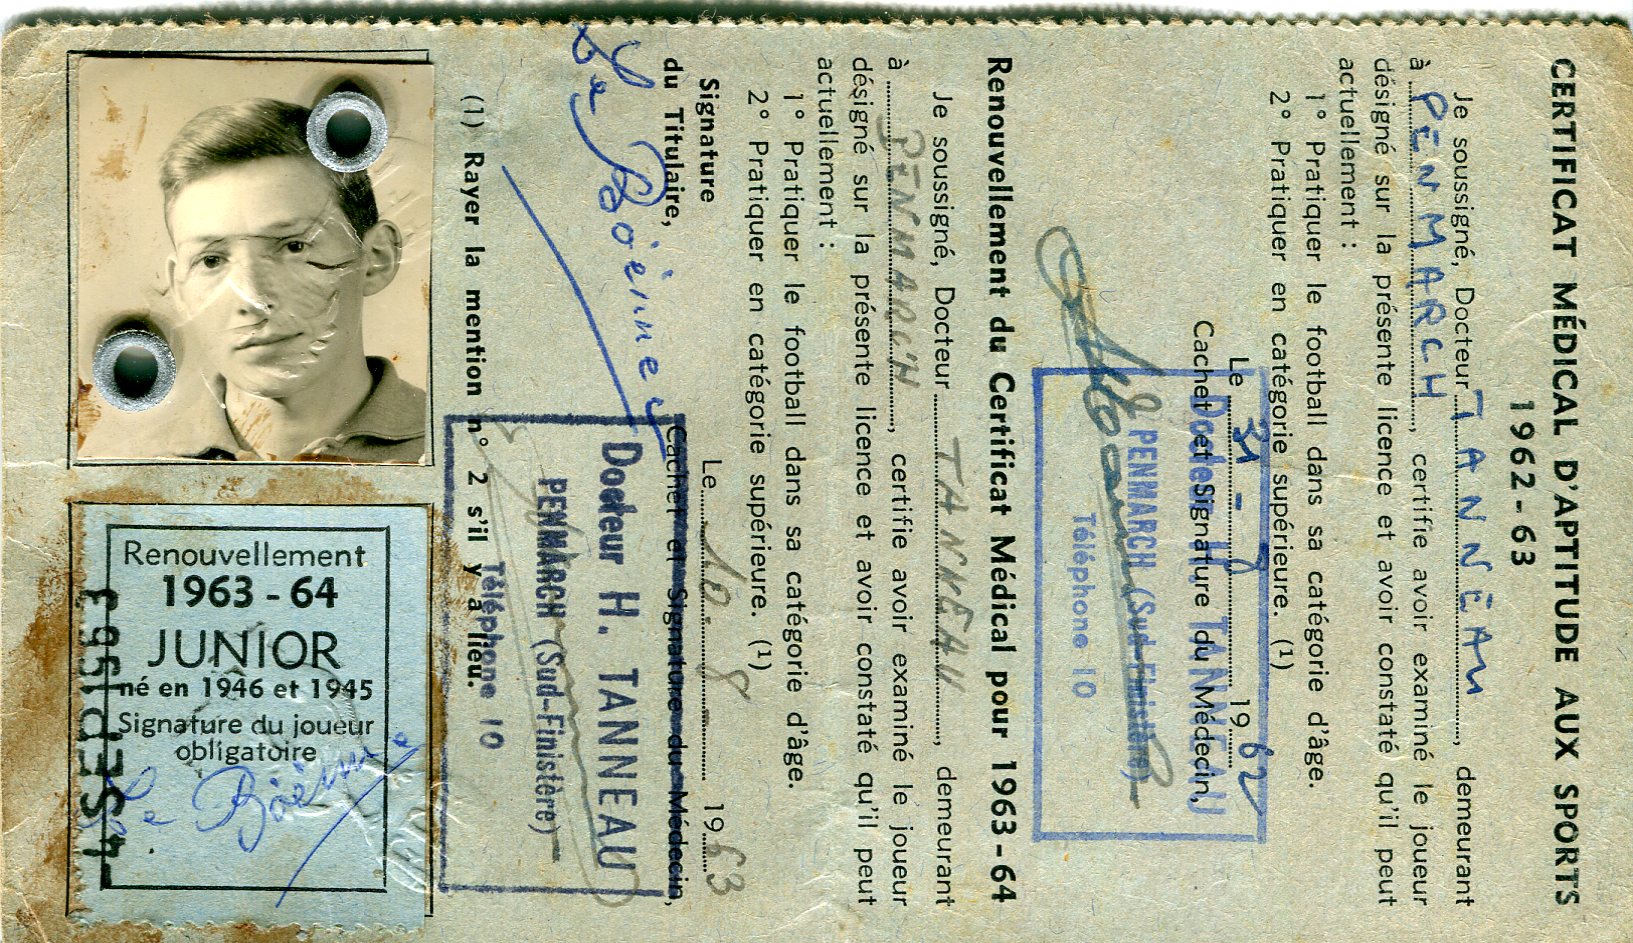 CERTIFICAT MÉDICAL D'APTITUDE AUX SPORTS
1962-63
Je soussigné, Docteur TANNEAU, demeurant
à PENMARCH, certifie avoir examiné le joueur
désigné sur la présente licence et avoir constaté qu'il peut
actuellement :
1° Pratiquer le football dans sa catégorie d'âge.
2° Pratiquer en catégorie supérieure. (1)
Le 31-8 1962
Cachet et Signature du Médecin,
Docteur H. TANNEAU
PENMARCH (Sud-Finistère)
Téléphone 10
Renouvellement du Certificat Médical pour 1963-64
Je soussigné, Docteur TANNEAU, demeurant
à PENMARC'H, certifie avoir examiné le joueur
désigné sur la présente licence et avoir constaté qu'il peut
actuellement :
1° Pratiquer le football dans sa catégorie d'âge.
2° Pratiquer en catégorie supérieure. (1)
Le 10.8 1963
Signature
du Titulaire,
Cachet et Signature du Médecin,
Le Boënnec
Docteur H. TANNEAU
PENMARCH (Sud-Finistère)
Téléphone 10
(1) Rayer la mention n° 2 s'il y a lieu.
Renouvellement
1963-64
JUNIOR
né en 1946 et 1945
Signature du joueur
obligatoire
-4 SEP 1963